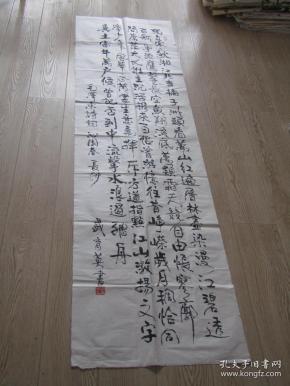 独立寒秋湘江北去橘子洲头看万山红遍层林尽染漫江碧透
百舸争流鹰击长空鱼翔浅底万类霜天竞自由怅寥廓
问苍茫大地谁主沉浮携来百侣曾游忆往昔峥嵘岁月稠恰同
学少年风华正茂书生意气挥斥方遒指点江山激扬文字
粪土当年万户侯曾记否到中流击水浪遏飞舟
毛泽东诗词 沁园春 长沙
书
孔夫子旧书网